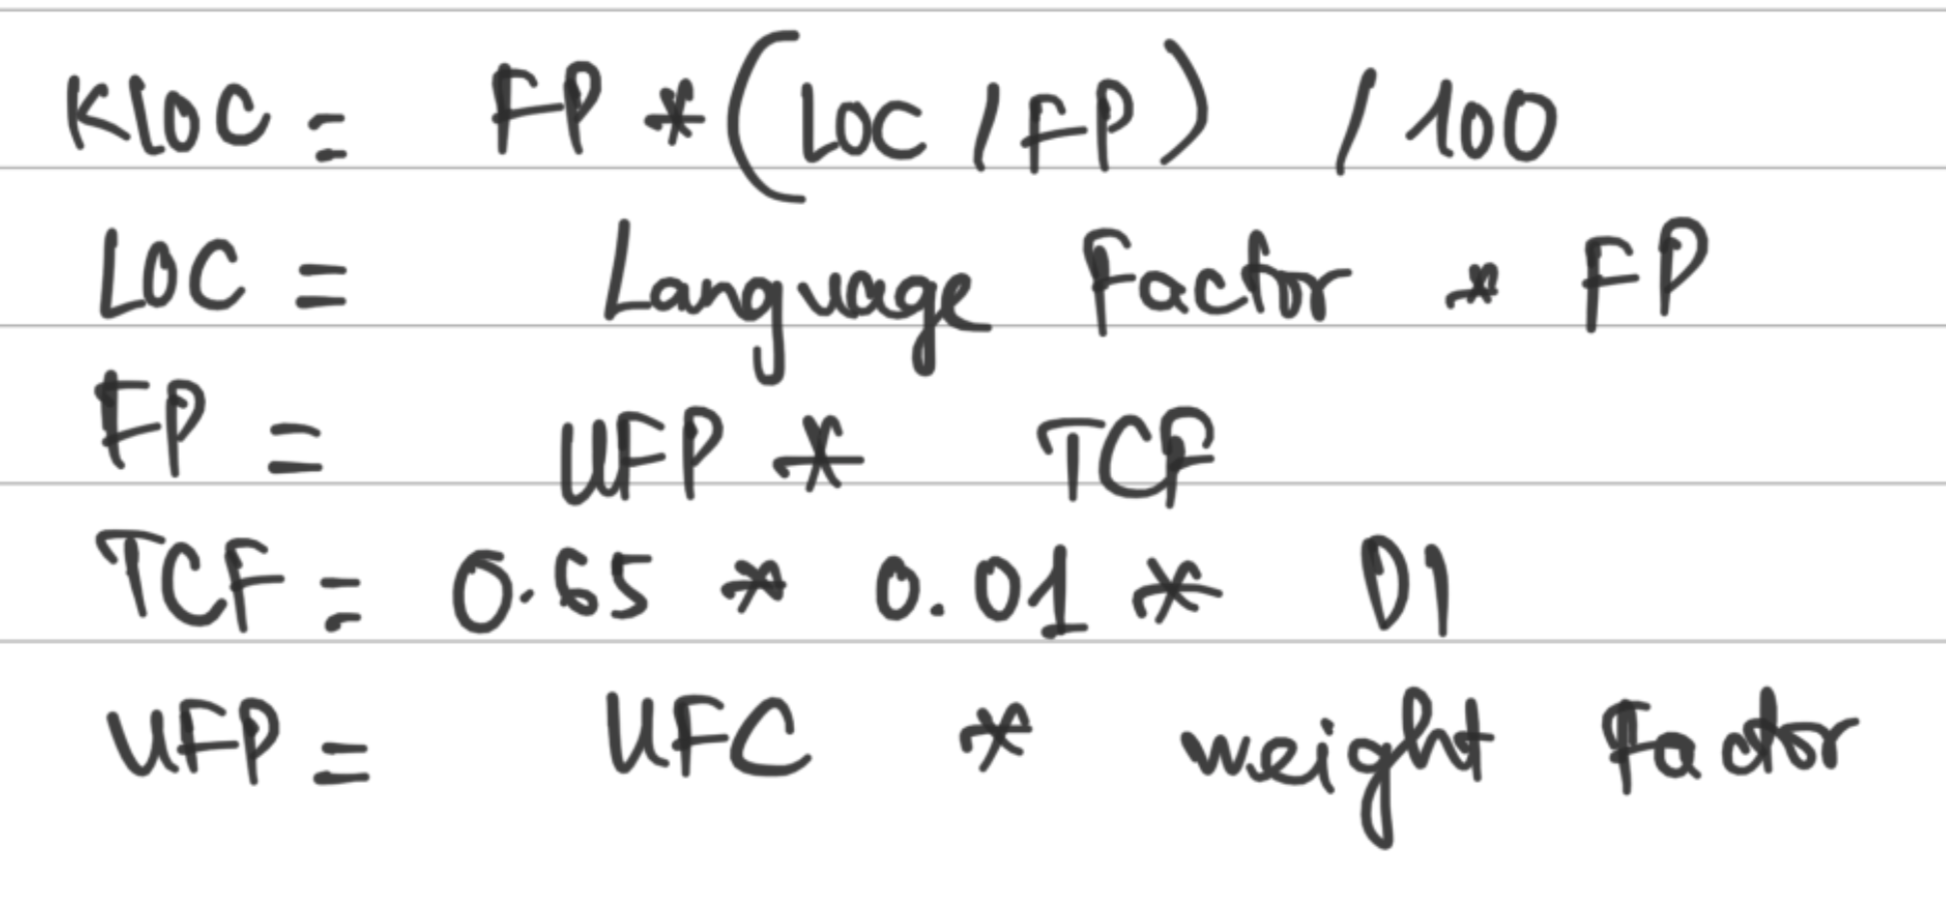 KLOC = FP * (LOC / FP) / 100
LOC = Language Factor * FP
FP = UFP * TCF
TCF = 0.65 * 0.01 * DI
UFP = UFC * weight Factor